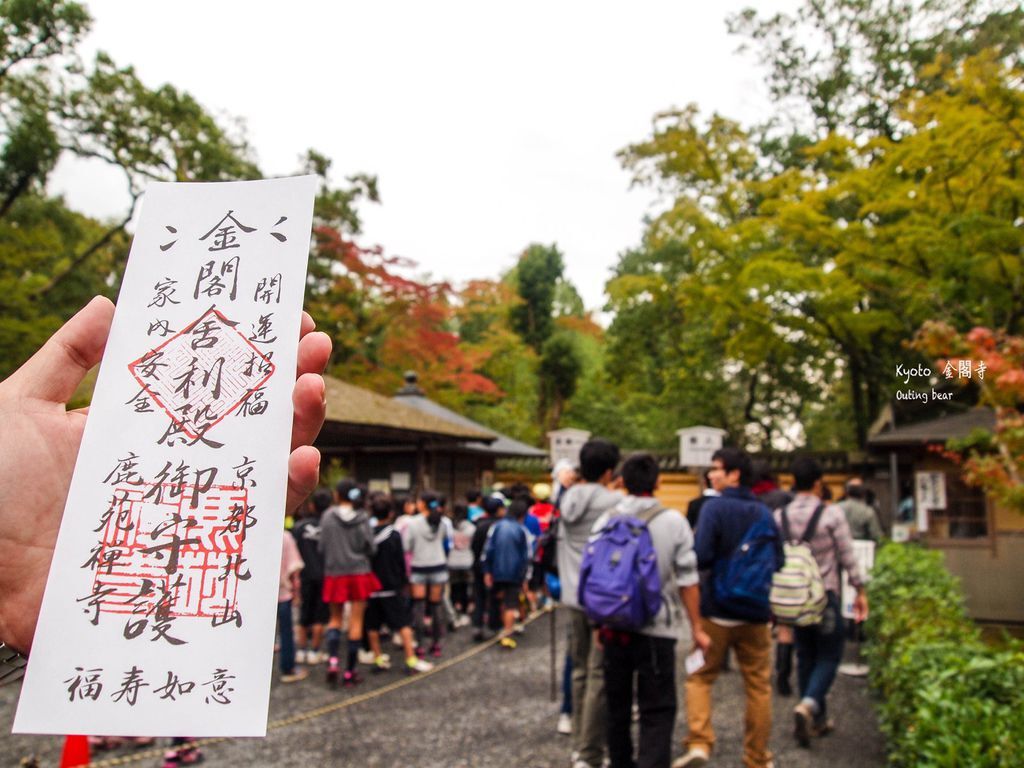 金閣舎利殿御守護
開運招福
家内安全
京都北山
鹿苑禅寺
福寿如意
Kyoto 金閣寺
Outing bear